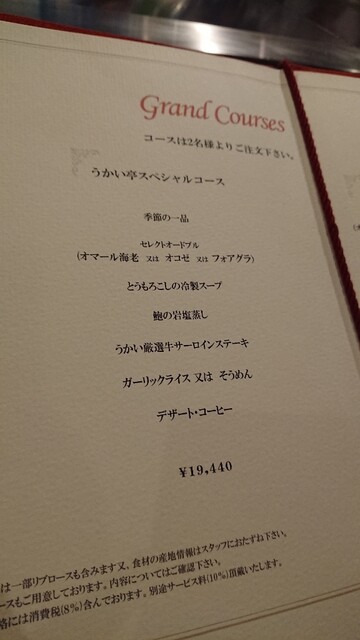 Grand Courses
コースは2名様よりご注文下さい。
うかい亭スペシャルコース
季節の一品
セレクトオードブル
(オマール海老 又は オコゼ 又は フォアグラ)
とうもろこしの冷製スープ
鮑の岩塩蒸し
うかい厳選牛サーロインステーキ
ガーリックライス 又は そうめん
デザート・コーヒー
¥19,440
は一部リブロースも含みます又、食材の産地情報はスタッフにおたずね下さい。
ースもご用意しております。内容についてはご確認下さい。
格には消費税(8%)含んでおります。別途サービス料(10%)頂戴いたします。